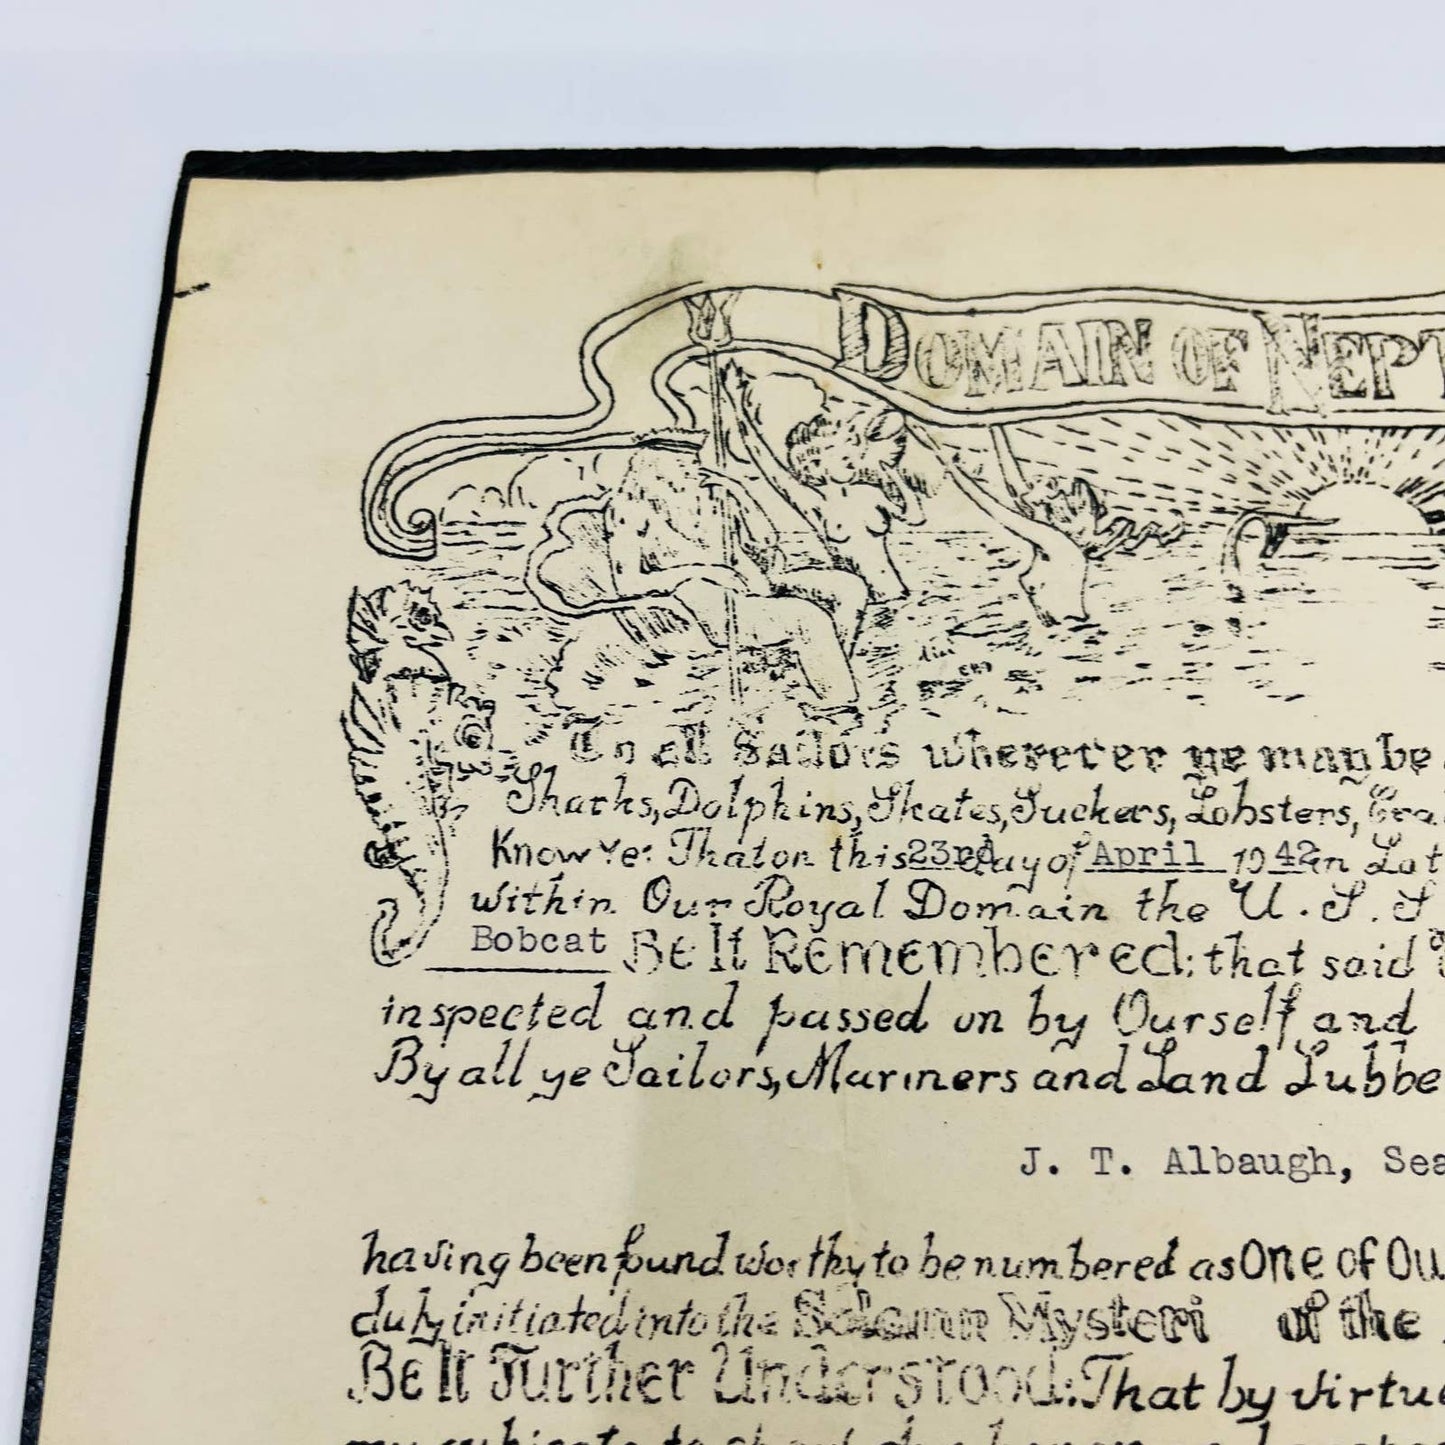 DOMAIN OF NEPT
To all Sailors wherever ye may be
Sharks, Dolphins, Skates, Suckers, Lobsters, Cra
Know Ye: That on this 23rd day of April 1942 in Lat
within Our Royal Domain the U. S. S
Bobcat Be It Remembered: that said
inspected and passed on by Ourself and
By all ye Sailors, Mariners and Land Lubbe
J. T. Albaugh, Sea
having been found worthy to be numbered as One of Ou
duly initiated into the Solemn Mysteri of the
Be It Further Understood: That by virtu